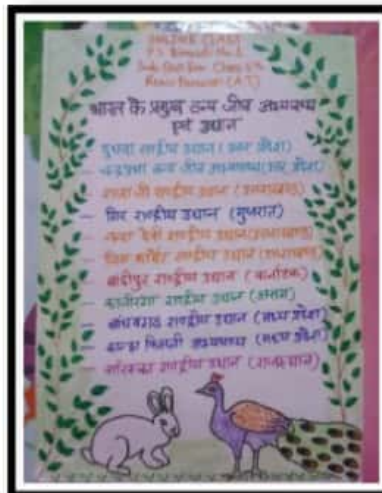 ONLINE CLASS
P.S. Bamrauli No. 1
भारत के प्रमुख वन्य जीव अभ्यारण्य
एवं उद्यान
दुधवा राष्ट्रीय उद्यान (उत्तर प्रदेश)
- चन्द्रप्रभा वन्य जीव अभ्यारण्य (उत्तर प्रदेश)
- राजा जी राष्ट्रीय उद्यान (उत्तराखण्ड)
- गिर राष्ट्रीय उद्यान (गुजरात)
- नन्दा देवी राष्ट्रीय उद्यान (उत्तराखण्ड)
- जिम कार्बेट राष्ट्रीय उद्यान (उत्तराखण्ड)
- बांदीपुर राष्ट्रीय उद्यान (कर्नाटक)
- काजीरंगा राष्ट्रीय उद्यान (असम)
- बांधवगढ़ राष्ट्रीय उद्यान (मध्य प्रदेश)
- कान्हा किसली अभ्यारण्य (मध्य प्रदेश)
- सरिस्का राष्ट्रीय उद्यान (राजस्थान)